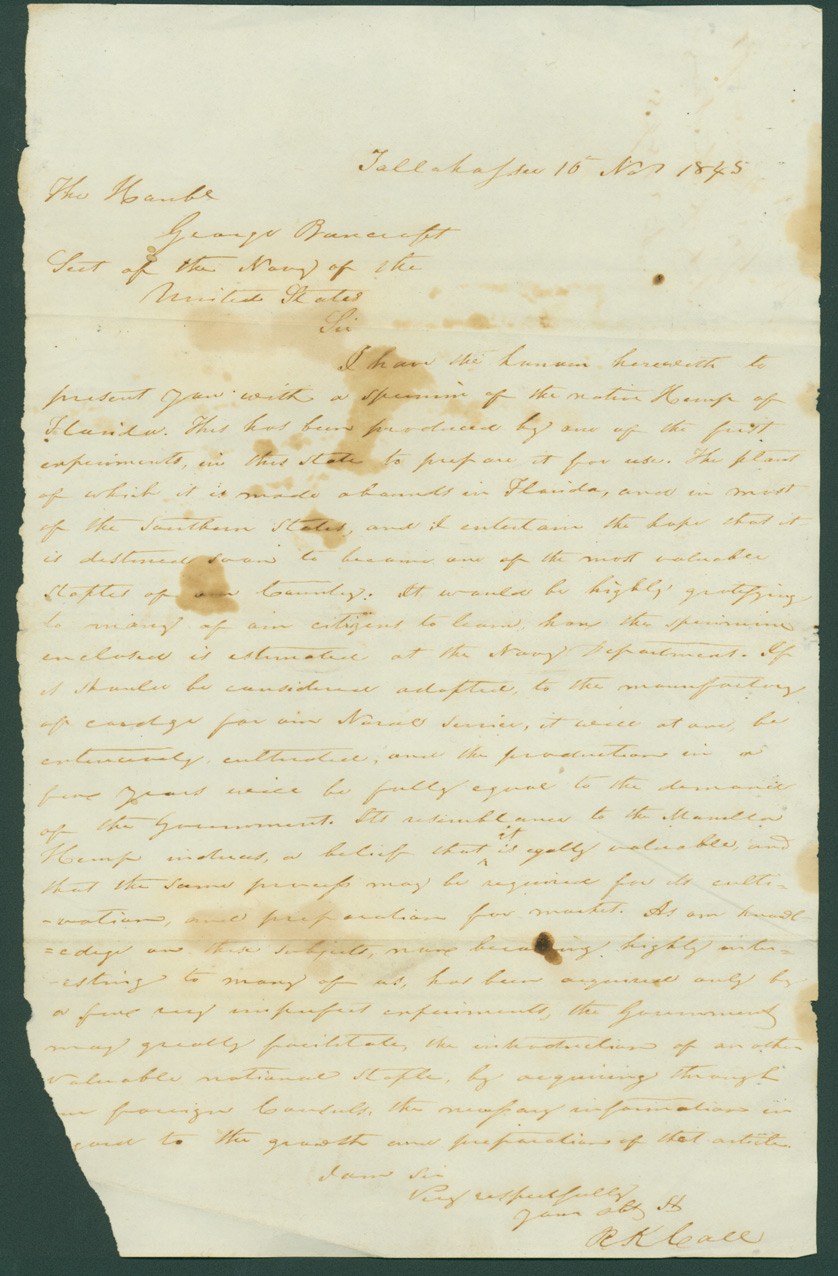 Tallahassee 15 Nov 1845
The Honbl
George Bancroft
Sect of the Navy of the
United States
Sir
I have the honour herewith to
present you with a specimin of the native Hemp of
Florida. This has been produced by one of the first
experiments, in this State to prepare it for use. The plant
of which it is made abounds in Florida, and in most
of the Southern States, and I entertain the hope that it
is destined soon to become one of the most valuable
staples of our Country. It would be highly gratifying
to many of our citizens to learn, how the specimine
enclosed is estimated at the Navy Department. If
it should be considered adapted, to the manufactory
of cordge for our Naval service, it will at once, be
extensively cultivated, and the production in a
few years will be fully equal to the demand
of the Government. Its resemblance to the Manilla
Hemp induces, a belief that it is eqally valuable, and
that the same process may be required for its culti-
-vation, and preparation for market. As our knowl
=edge on this subject, now becoming highly inter=
-esting to many of us, has been acquired only by
a few very imperfect experiments, the Government
may greatly facilitate, the introduction of another
valuable national staple, by acquiring through
our foreign Consuls, the necessary information in
gard to the growth and preparation of that article.
I am Sir
Very respectfully
your obt St
R K Call